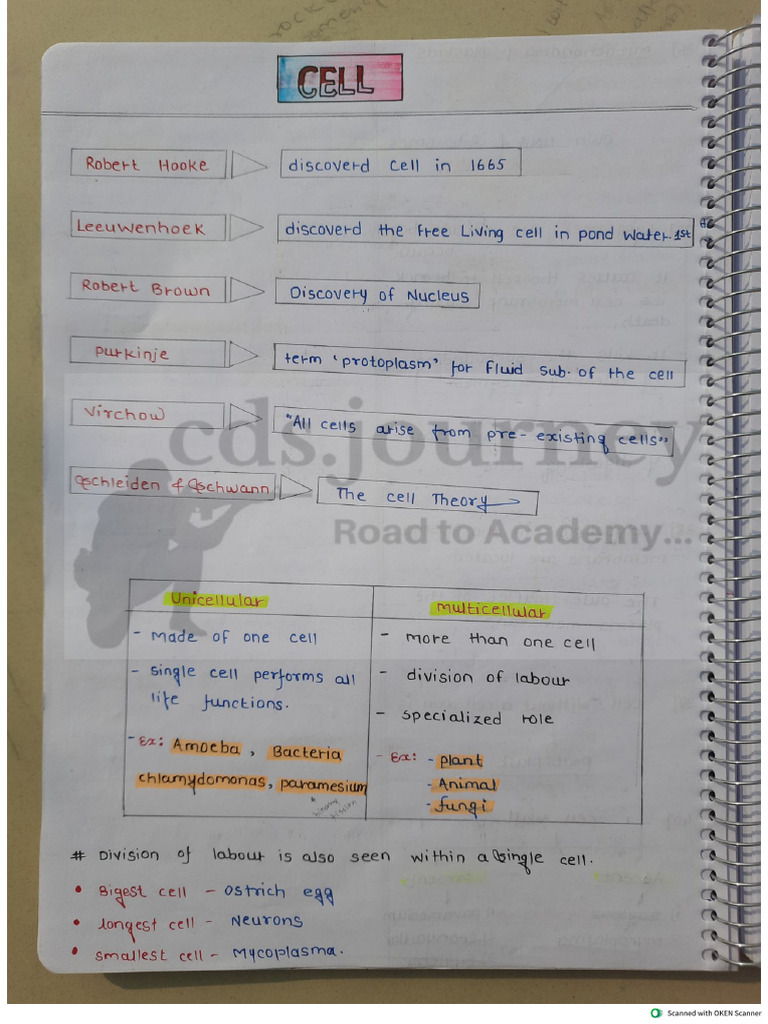 CELL
Robert Hooke
discoverd cell in 1665
Leeuwenhoek
discoverd the free Living cell in pond water. 1st
Robert Brown
Discovery of Nucleus
Purkinje
term 'protoplasm' for fluid sub. of the cell
Virchow
"All cells arise from pre-existing cells"
Schleiden & Schwann
The cell Theory
cds.journey
Road to Academy...
Unicellular
- made of one cell
- single cell performs all
life functions.
- Ex: Amoeba, Bacteria
chlamydomonas, paramesium
binary
fission
Multicellular
- more than one cell
- division of labour
- specialized role
- Ex: - plant
- Animal
- fungi
# Division of labour is also seen within a single cell.
• Bigest cell - Ostrich egg
• longest cell - Neurons
• smallest cell - Mycoplasma.
Scanned with OKEN Scanner